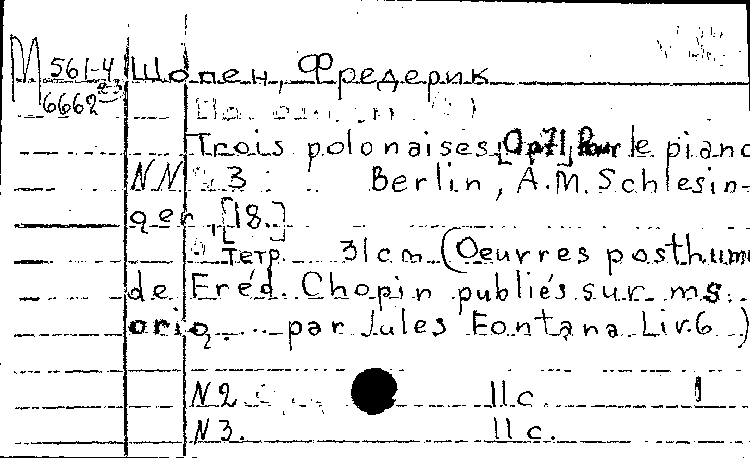 М 561-4 Шопен, Фредерик
6662
Trois polonaises, [Op 71] Pour le piano
NN 3 Berlin, A.M. Schlesin-
ger, [18..]
Тетр. 31 cm (Oeuvres posthum
de Fréd. Chopin publiés sur ms.
orig. ... par Jules Fontana Liv. 6 )
N 2 11 c. 1
N 3. 11 c.